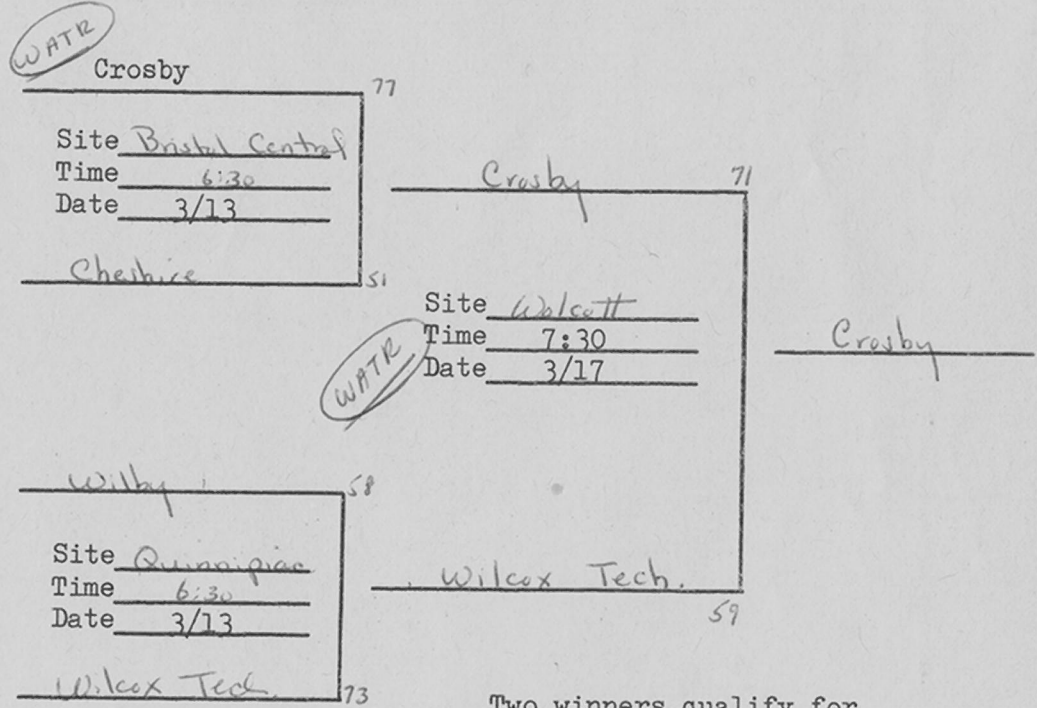 WATR
Crosby
77
Site Bristol Central
Time 6:30
Date 3/13
Cheshire
51
Crosby
71
Site Wolcott
Time 7:30
Date 3/17
WATR
Crosby
Wilby
58
Site Quinnipiac
Time 6:30
Date 3/13
Wilcox Tech.
73
Wilcox Tech.
59
Two winners qualify for